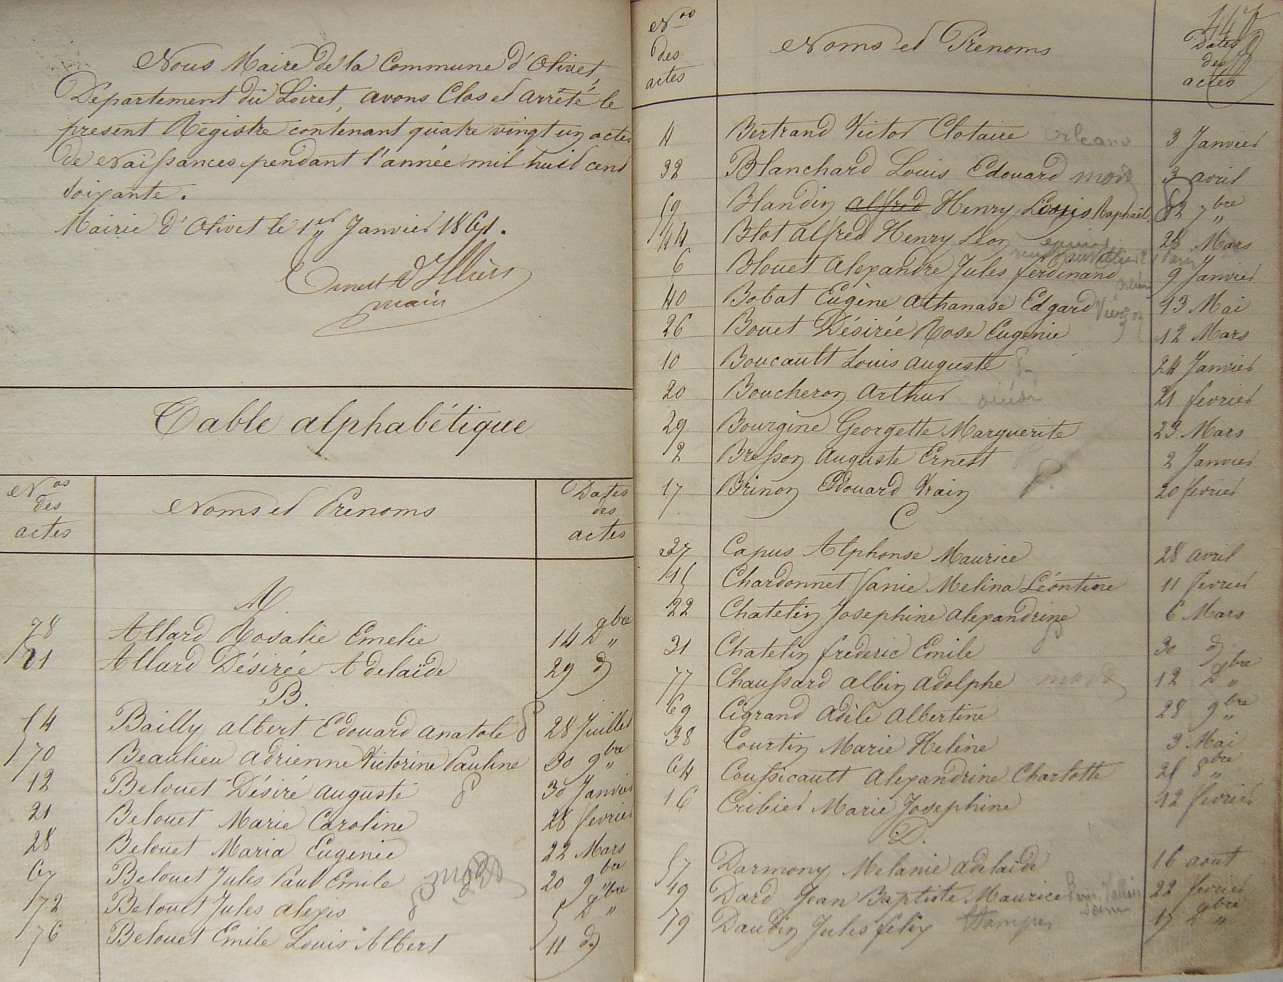 Nous Maire de la Commune d'Olivet,
Département du Loiret, avons Clos et arrêté le
présent Registre contenant quatre vingt un actes
de Naissances pendant l'année mil huit cent
soixante.
Mairie d'Olivet le 1er Janvier 1861.
Ernest d'Illiers
maire
Table alphabétique
Nos des actes Noms et Prénoms Dates des actes
A.
78 Allard Rosalie Emelie 14 Xbre
Allard Désirée Adelaïde 29 d
B.
54 Bailly albert Edouard anatole 28 Juillet
70 Beaulieu adrienne Victorine Pauline 30 9bre
12 Belouet Désiré auguste 30 Janvier
21 Belouet Marie Caroline 28 fevrier
28 Belouet Maria Eugenie 22 Mars
67 Belouet Jules Paul Emile 20 9bre
72 Belouet Jules alexis 5 Xbre
76 Belouet Emile Louis Albert 11 d
Nos des actes Noms et Prénoms Dates des actes
4 Bertrand Victor Clotaire Orléans 3 Janvier
32 Blanchard Louis Edouard mort 3 avril
59 Blandin alfred Henry Louis Raphaël 7bre
44 Blot alfred Henry Léon 28 Mars
6 Blouet Alexandre Jules ferdinand 9 Janvier
40 Bobat Eugène athanase Edgard 13 Mai
26 Bouet Désirée Rose Eugenie 12 Mars
10 Boucault Louis auguste 24 Janvier
20 Boucheron Arthur 21 fevrier
29 Bourgine Georgette Marguerite 23 Mars
2 Bresson auguste Ernest 2 Janvier
17 Brinon Edouard Vrain 20 fevrier
C
37 Capus Alphonse Maurice 28 avril
15 Chardonnet fanie Melina Léontine 11 fevrier
22 Chatelin Josephine alexandrine 6 Mars
31 Chatelin frederic Emile 30 d
77 Chaussard albin adolphe mort 12 Xbre
69 Cigrand Adèle Albertine 28 9bre
38 Courtin Marie Helène 3 Mai
64 Coussicault Alexandrine Charlotte 21 8bre
16 Cribier Marie Josephine 12 fevrier
D.
57 Darmony Melanie adelaïde 16 aout
19 Dard Jean Baptiste Maurice 22 fevrier
79 Daudin Jules felix Etampes 17 Xbre